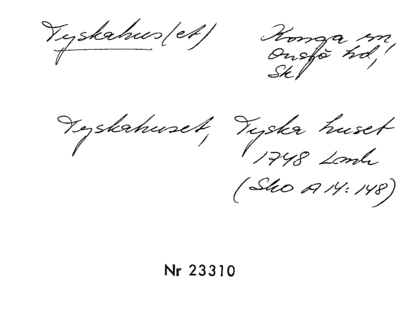 Tyskahus(et) Konga sn,
Onsjö hd,
Sk.
Tyskahuset, Tyska huset
1748 Lmk
(Sko A 14:148)
Nr 23310